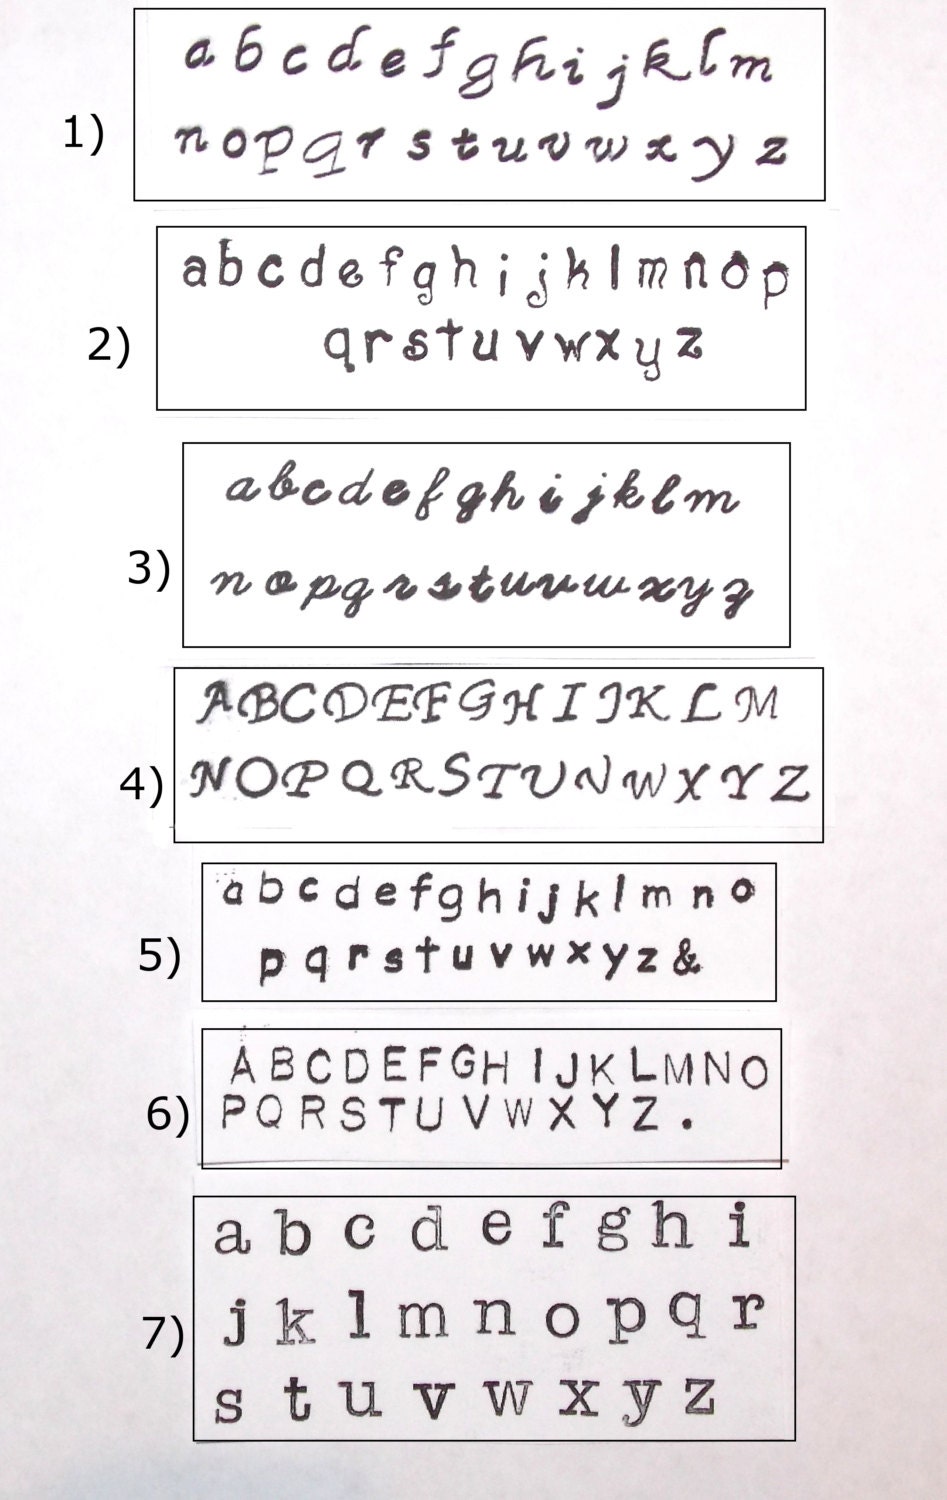 1)
a b c d e f g h i j k l m
n o p q r s t u v w x y z
2)
a b c d e f g h i j k l m n o p
q r s t u v w x y z
3)
a b c d e f g h i j k l m
n o p q r s t u v w x y z
4)
A B C D E F G H I J K L M
N O P Q R S T U V W X Y Z
5)
a b c d e f g h i j k l m n o
p q r s t u v w x y z &
6)
A B C D E F G H I J K L M N O
P Q R S T U V W X Y Z .
7)
a b c d e f g h i
j k l m n o p q r
s t u v w x y z